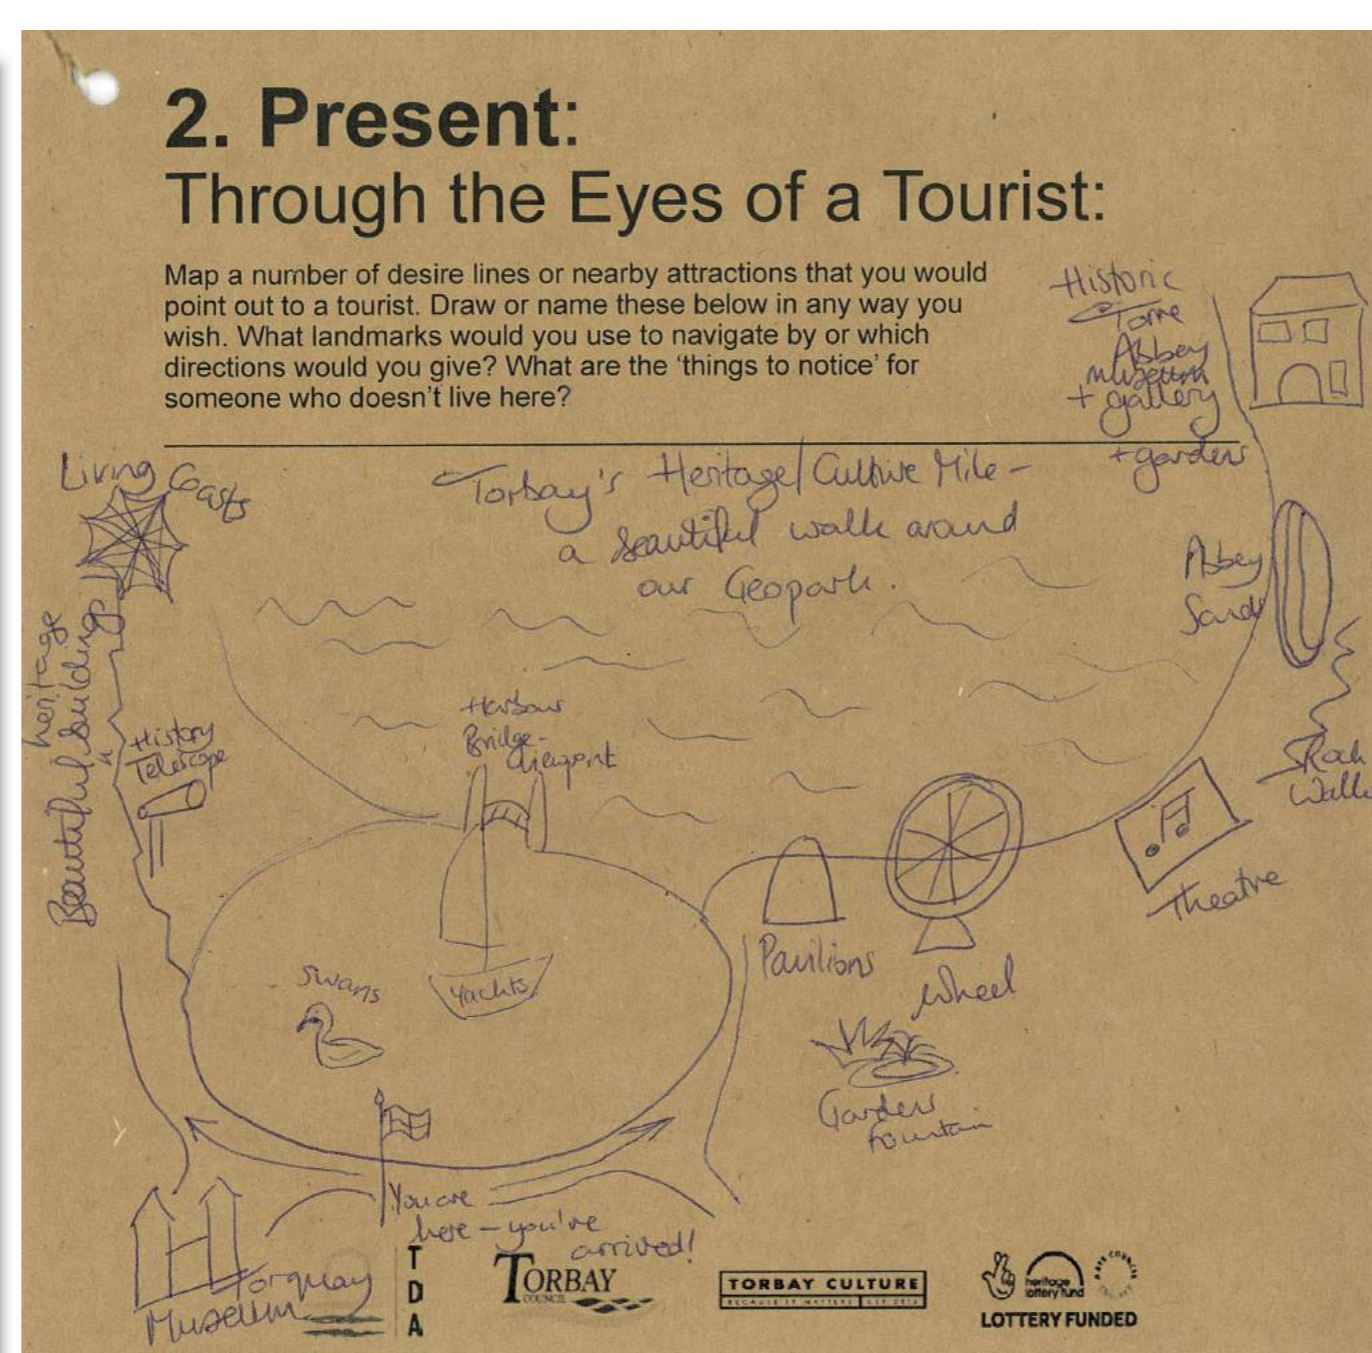 2. Present:
Through the Eyes of a Tourist:
Map a number of desire lines or nearby attractions that you would
point out to a tourist. Draw or name these below in any way you
wish. What landmarks would you use to navigate by or which
directions would you give? What are the 'things to notice' for
someone who doesn't live here?
Historic
Torre
Abbey
museum
+ gallery
+ gardens
Living Coasts
Torbay's Heritage/Culture Mile -
a beautiful walk around
our Geopark.
Abbey
Sands
heritage
Beautiful building
History
Telescope
Harbour
Bridge -
viewpoint
Rock
Walk
Theatre
Pavilions
Wheel
Swans
Yachts
Gardens
fountain
You are
here - you've
arrived!
Torquay
Museum
TDA
TORBAY
COUNCIL
TORBAY CULTURE
BECAUSE IT MATTERS
heritage
lottery fund
ARTS COUNCIL
LOTTERY FUNDED